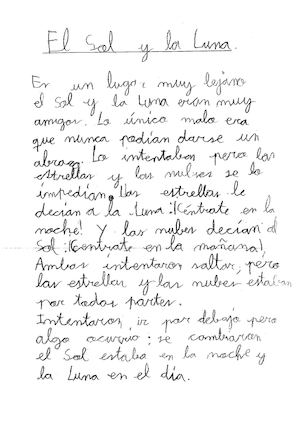 El Sol y la Luna.
En un lugar muy lejano
el Sol y la Luna eran muy
amigos. Lo único malo era
que nunca podían darse un
abrazo. Lo intentaban pero las
estrellas y las nubes se lo
impedían. Las estrellas le
decían a la Luna: ¡Céntrate en la
noche! Y las nubes decían al
Sol: ¡Céntrate en la mañana!
Ambos intentaron saltar, pero
las estrellas y las nubes estaban
por todas partes.
Intentaron ir por debajo pero
algo ocurrió: se cambiaron
el Sol estaba en la noche y
la Luna en el día.